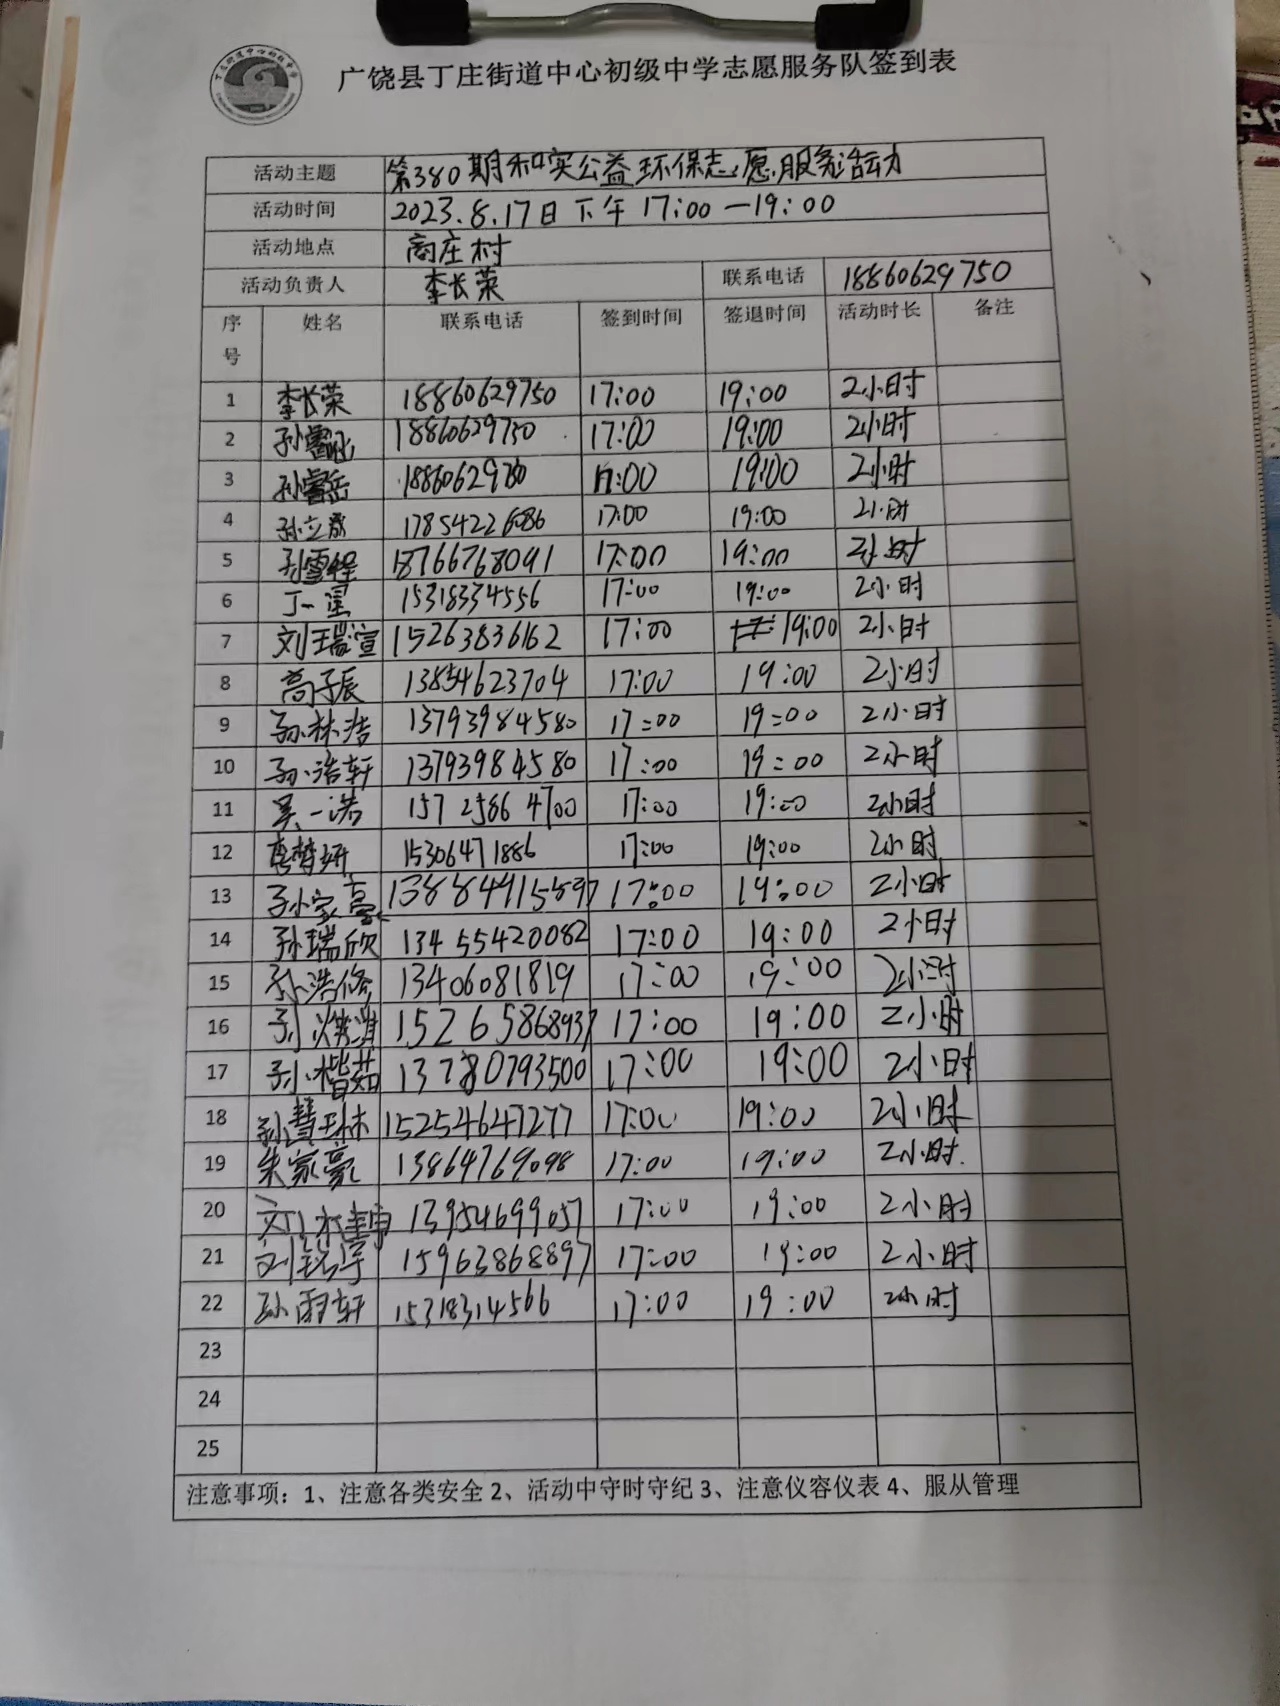 广饶县丁庄街道中心初级中学志愿服务队签到表
活动主题 第380期和实公益环保志愿服务活动
活动时间 2023.8.17日下午17:00—19:00
活动地点 商庄村
活动负责人 李长荣 联系电话 18860629750
序号 姓名 联系电话 签到时间 签退时间 活动时长 备注
1 李长荣 18860629750 17:00 19:00 2小时
2 18860629750 17:00 19:00 2小时
3 孙睿岳 17:00 19:00 2小时
4 17854226086 17:00 19:00 2小时
5 孙雪程 18766768091 17:00 19:00 2小时
6 丁一星 15318334556 17:00 19:00 2小时
7 刘瑞萱 15263836162 17:00 19:00 2小时
8 高子辰 13854623704 17:00 19:00 2小时
9 孙林浩 13793984580 17:00 19:00 2小时
10 孙浩轩 13793984580 17:00 19:00 2小时
11 吴一诺 15725864700 17:00 19:00 2小时
12 15306471886 17:00 19:00 2小时
13 孙家豪 13884915597 17:00 19:00 2小时
14 孙瑞欣 13455420082 17:00 19:00 2小时
15 孙浩修 13406081819 17:00 19:00 2小时
16 15265868937 17:00 19:00 2小时
17 孙楷茹 13780793500 17:00 19:00 2小时
18 孙慧琳 15254647277 17:00 19:00 2小时
19 朱家豪 13864769098 17:00 19:00 2小时
20 13954699057 17:00 19:00 2小时
21 刘铭宇 15963868897 17:00 19:00 2小时
22 孙雨轩 15318314566 17:00 19:00 2小时
23
24
25
注意事项：1、注意各类安全 2、活动中守时守纪 3、注意仪容仪表 4、服从管理